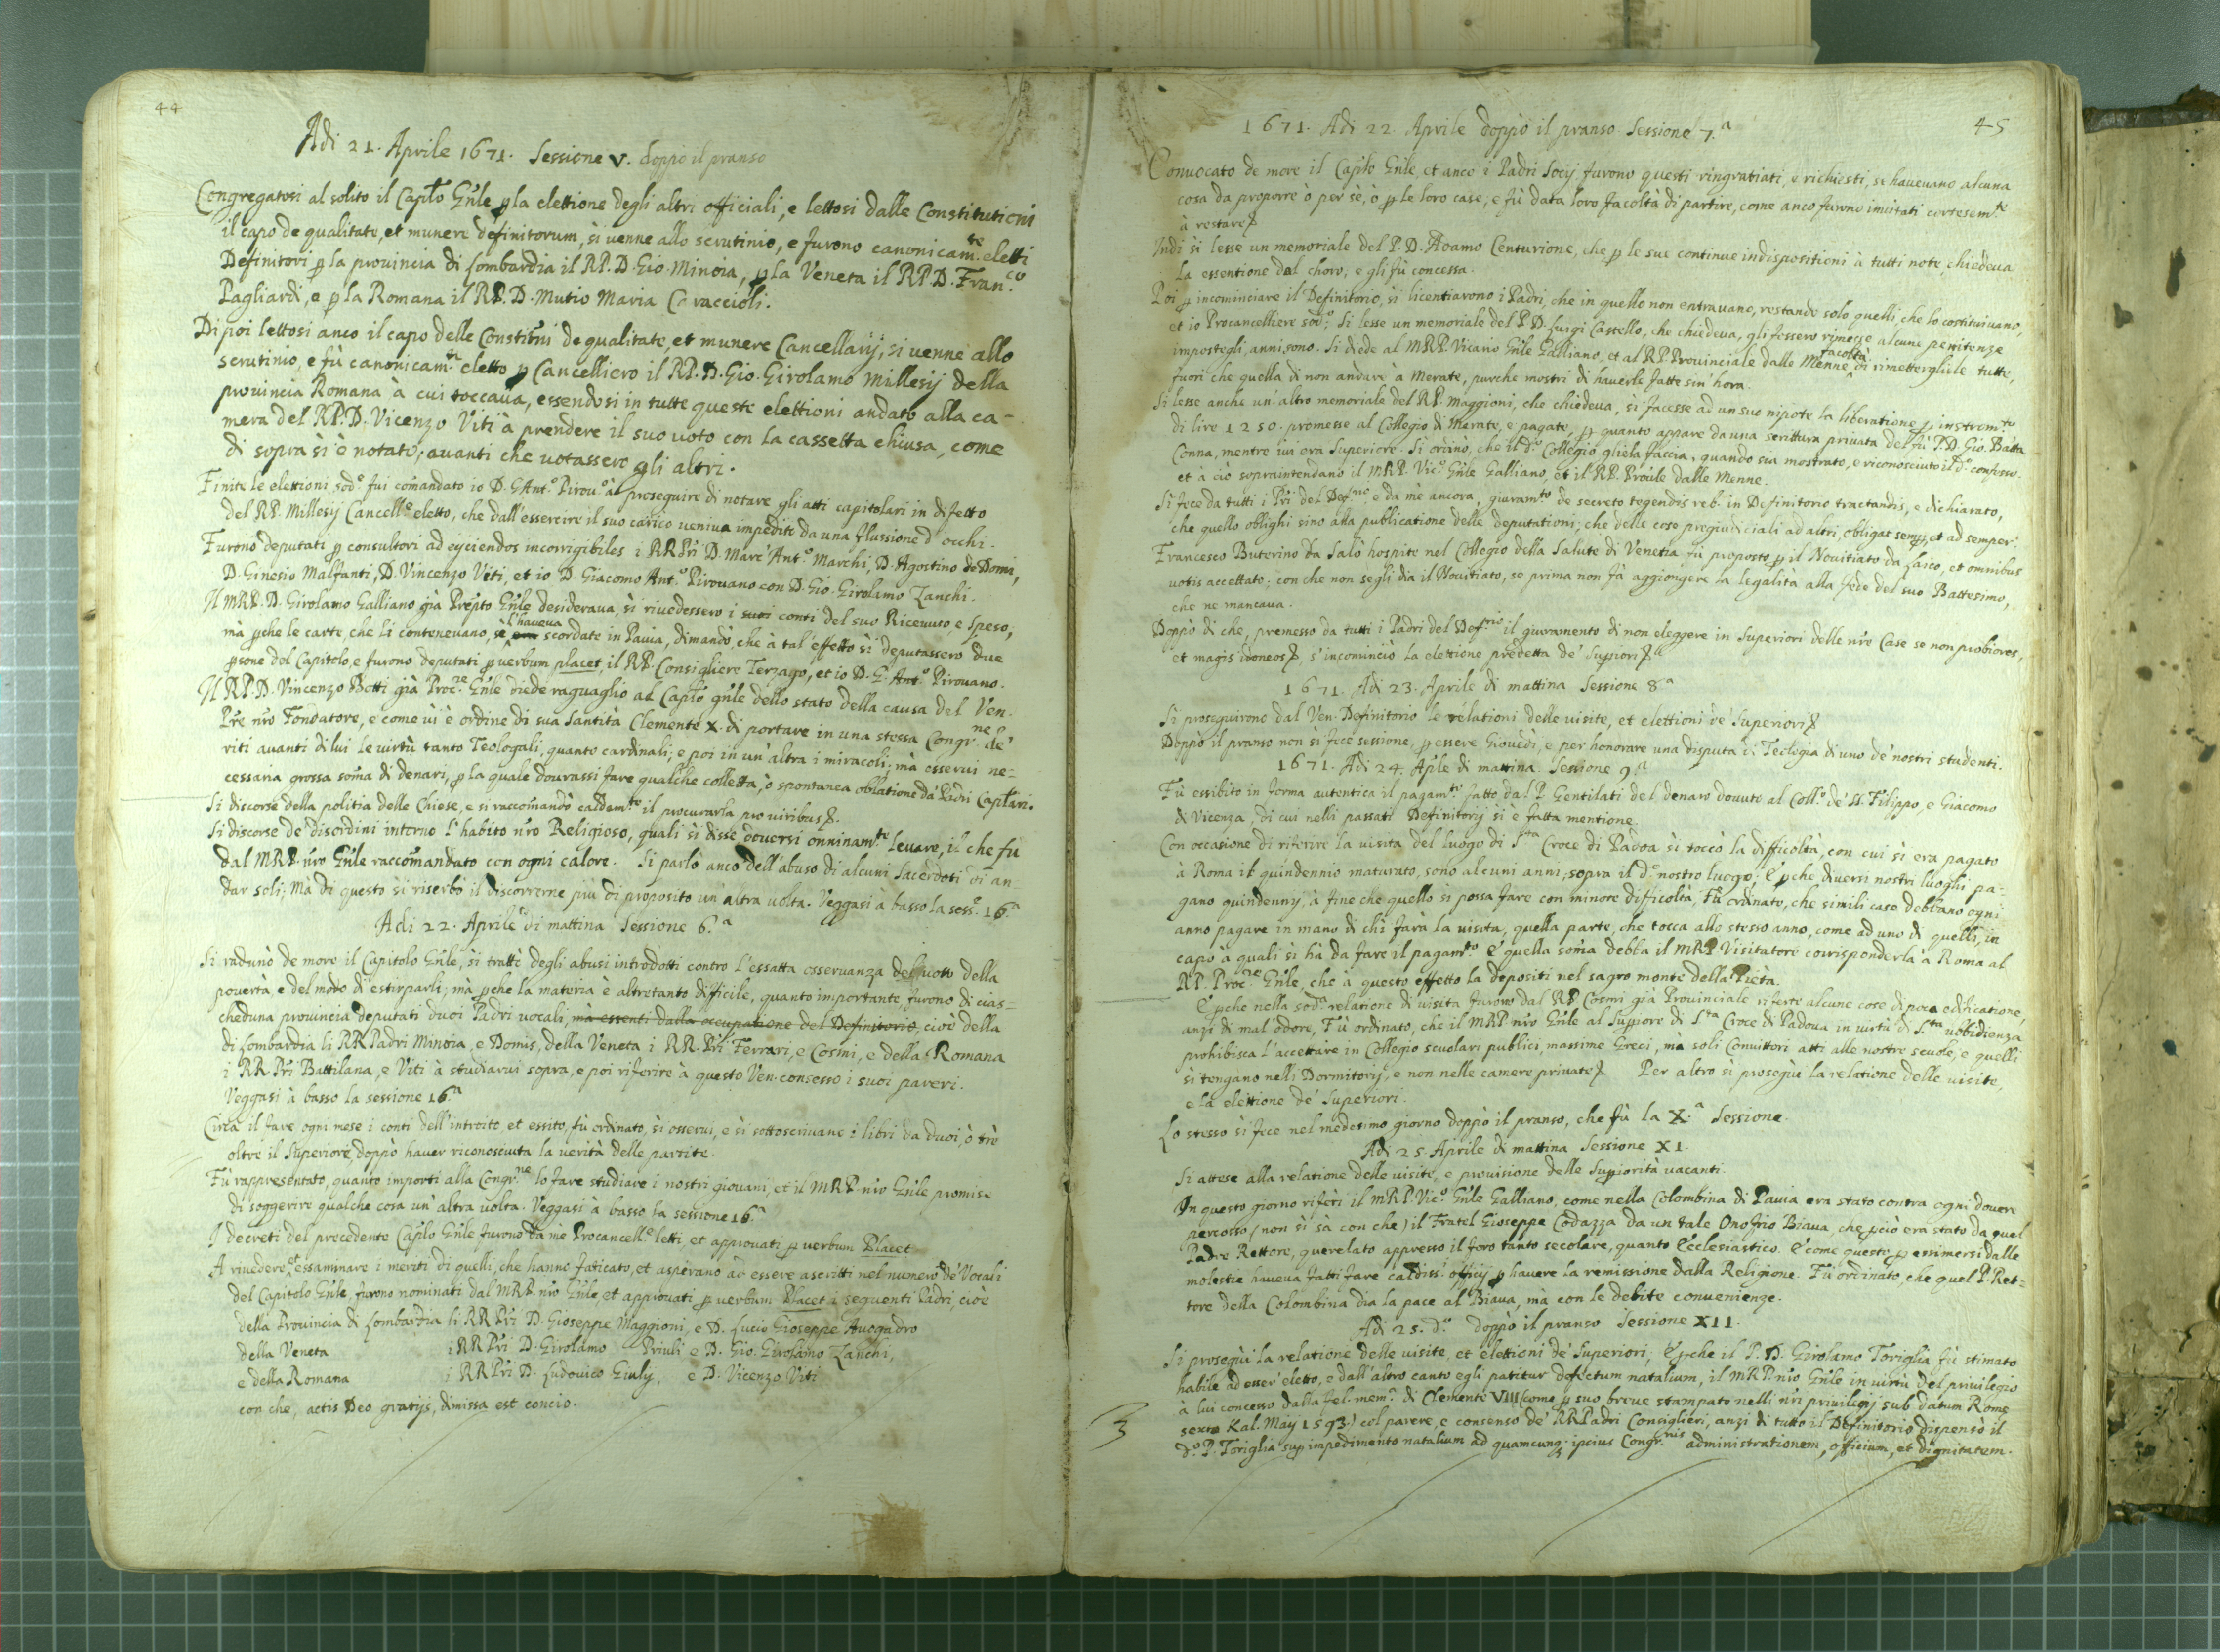 44
Adi 21. Aprile 1671. Sessione V. doppo il pranso
Congregatosi al solito il Caplo Gn̄le p la elettione degli altri officiali, e lettosi dalle Constitutioni
il capo de qualitate, et munere definitorum, si venne allo scrutinio, e furono canonicam.te eletti
Definitori p la prouincia di Lombardia il RP. D. Gio. Minoia, p la Veneta il RP. D. Fran.co
Pagliardi, e p la Romana il RP. D. Mutio Maria Caraccioli.
Di poi lettosi anco il capo delle Constitni de qualitate, et munere Cancellarij, si venne allo
scrutinio, e fù canonicam.te eletto p Cancelliero il RP. D. Gio. Girolamo Millesij della
prouincia Romana à cui toccaua, essendosi in tutte queste elettioni andato alla ca-
mera del RP. D. Vicenzo Viti à prendere il suo uoto con la cassetta chiusa, come
di sopra si è notato, auanti che uotassero gli altri.
Finite le elettioni sod.e fui comandato io D. G. Ant.o Pirou.o à proseguire di notare gli atti capitolari in difetto
del RP. Millesij Cancell.e eletto, che dall'essercire il suo carico ueniua impedito da una flussione d'occhi.
Furono deputati p consultori ad eijciendos incorrigibiles i RRPri D. Marc'Ant.o Marchi, D. Agostino de Domi,
D. Ginesio Malfanti, D. Vincenzo Viti, et io D. Giacomo Ant.o Pirouano con D. Gio. Girolamo Zanchi.
Il MRP. D. Girolamo Galliano già Prepto Gn̄le desideraua, si riuedessero i suoi conti del suo Riceuuto, e Speso;
mà pche le carte, che li conteneuano, se l'haueua scordate in Pauia, dimandò, che à tal' effetto si deputassero due
psone del Capitolo, e furono deputati p uerbum placet, il RP. Consigliere Terzago, et io D. G. Ant.o Pirouano.
Il RP. D. Vincenzo Botti già Proc.re Gn̄le diede raguaglio al Caplo gn̄le dello stato della causa del Ven.
Pre nro Fondatore, e come ui è ordine di sua Santità Clemente X. di portare in una stessa Congr.ne de'
riti auanti di lui le uirtù tanto Teologali, quanto cardinali; e poi in un'altra i miracoli; mà esserui ne=
cessaria grossa soma di denari, p la quale dourassi fare qualche colletta, ò spontanea oblatione da' Padri Caplari.
Si discorse della politia delle Chiese, e si raccomandò caldem.te il procurarla pro uiribus.
Si discorse de' disordini intorno l'habito nro Religioso, quali si disse douersi onninam.te leuare, il che fu
dal MRP. nro Gn̄le raccomandato con ogni calore. Si parlò anco dell'abuso di alcuni Sacerdoti di an-
dar soli; Mà di questo si riserbò il discorrerne più di proposito un'altra uolta. Veggasi à basso la sess.e 16.a
Adi 22. Aprile di mattina Sessione 6.a
Si radunò de more il Capitolo Gn̄le, si trattò degli abusi introdotti contro l'essatta osseruanza del uoto della
pouertà, e del modo di estirparli; mà pche la materia è altretanto difficile, quanto importante furono di cias=
cheduna prouincia deputati duoi Padri uocali, mà essenti dalla occupatione del Definitorio, cioè della
di Lombardia li RRPadri Minoia, e Domis, della Veneta i RR. Pri Ferrari, e Cosmi, e della Romana
i RR Pri Battilana, e Viti à studiarui sopra, e poi riferire à questo Ven. consesso i suoi pareri.
Veggasi à basso la sessione 16.a
Circa il fare ogni mese i conti dell'introito et essito, fù ordinato, si osserui, e si sottoscriuano i libri da duoi, ò trè
oltre il Superiore, doppò hauer riconosciuta la uerità delle partite.
Fù rappresentato, quanto importi alla Congr.ne lo fare studiare i nostri giouani, et il MRP. nro Gn̄le promise
di soggerire qualche cosa un'altra uolta. Veggasi à basso la sessione 16.a
I decreti del precedente Caplo Gn̄le furono da mè Procancell.e letti et approuati p uerbum Placet
A riuedere, et essaminare i meriti di quelli, che hanno faticato, et aspirano ad essere ascritti nel numero de' Vocali
del Capitolo Gn̄le, furono nominati dal MRP. nro Gn̄le, et approuati p uerbum Placet i seguenti Padri, cioè
della Prouincia di Lombardia li RR Pri D. Gioseppe Maggioni, e D. Lucio Gioseppe Auogadro
della Veneta i RR Pri D. Girolamo Priuli e D. Gio. Girolamo Zanchi,
e della Romana i RR Pri D. Ludouico Giulij, e D. Vicenzo Viti
con che, actis Deo gratijs, dimissa est concio.
45
1671. Adi 22. Aprile doppò il pranso Sessione 7.a
Conuocato de more il Caplo Gn̄le, et anco i Padri Socij furono questi ringratiati, e richiesti, se haueuano alcuna
cosa da proporre ò per sè, ò p le loro case, e fù data loro facoltà di partire, come anco furono inuitati cortesem.te
à restare
Indi si lesse un memoriale del P. D. Adamo Centurione, che p le sue continue indispositioni à tutti note, chiedeua
la essentione dal choro, e gli fù concessa.
Poi p incominciare il Definitorio, si licentiarono i Padri, che in quello non entrauano, restando solo quelli, che lo costituiuano,
et io Procancelliere sod.o; Si lesse un memoriale del P. D. Luigi Castello, che chiedeua, gli fossero rimesse alcune penitenze
impostegli, anni sono. Si diede al MRP. Vicario Gn̄le Galliano, et al RP. Prouinciale dalle Menne facoltà di rimettergliele tutte,
fuori che quella di non andare à Merate, purche mostri di hauerle fatte sin'hora.
Si lesse anche un'altro memoriale del RP. Maggioni, che chiedeua, si facesse ad un suo nipote la liberatione p instrom.to
di lire 1250. promesse al Collegio di Merate, e pagate, p quanto appare da una scrittura priuata del fù P. D. Gio. Batta
Conna, mentre iui era Superiore. Si ordinò, che il d.o Collegio gliela faccia, quando sia mostrato, e riconosciuto il d.o confesso.
et à ciò sopraintendano il MRP. Vic.o Gn̄le Galliano, et il RP. Prouīle dalle Menne.
Si fece da tutti i Pri del Def.rio, e da mè ancora, giuram.to de secreto tegendis reb. in Definitorio tractandis, e dichiarato,
che quello oblighi sino alla publicatione delle deputationi; che delle cose pregiudiciali ad altri, obligat semp, et ad semper.
Francesco Buterino da Salò hospite nel Collegio della Salute di Venetia fù proposto p il Nouitiato da laico, et omnibus
uotis accettato; con che non se gli dia il Nouitiato, se prima non fà aggiongere la legalità alla fede del suo Battesimo,
che ne mancaua.
Doppò di che, premesso da tutti i Padri del Def.rio il giuramento di non eleggere in Superiori delle nre Case se non probiores,
et magis idoneos, s'incominciò la elettione predetta de' Supiori
1671. Adi 23. Aprile di mattina Sessione 8.a
Si proseguirono dal Ven. Definitorio le relationi delle uisite, et elettioni de' Superiori
Doppò il pranso non si fece sessione, p essere Giouedì, e per honorare una disputa di Teologia di uno de' nostri studenti.
1671. Adi 24. Aprile di mattina. Sessione 9.a
Fù essibito in forma autentica il pagam.to fatto dal P. Gentilati del denaro douuto al Coll.o de' SS. Filippo, e Giacomo
di Vicenza, di cui nelli passati Definitorij si è fatta mentione.
Con occasione di riferire la uisita del luogo di S.ta Croce di Padoa si toccò la difficoltà, con cui si era pagato
à Roma il quindennio maturato, sono alcuni anni, sopra il d.o nostro luogo; E pche diuersi nostri luoghi pa-
gano quindennij, à fine che quello si possa fare con minore difficoltà, Fù ordinato, che simili case debbano ogni
anno pagare in mano di chi farà la uisita, quella parte, che tocca allo stesso anno, come ad uno di quelli, in
capo à quali si hà da fare il pagam.to E quella soma debba il MRP. Visitatore corrisponderla à Roma al
RP. Proc.re Gn̄le, che à questo effetto la depositi nel sagro monte della Pietà.
E pche nella sod.a relatione di uisita furono dal RP. Cosmi già Prouinciale riferte alcune cose di poca edificatione,
anzi di mal'odore, Fù ordinato, che il MRP. nro Gn̄le al Suppiore di S.ta Croce di Padoua in uirtù di S.ta ubbidienza
prohibisca l'accettare in Collegio scuolari publici, massime Greci, ma soli Conuittori atti alle nostre scuole, e quelli
si tengano nelli Dormitorij, e non nelle camere priuate Per altro si proseguì la relatione delle uisite,
e la elettione de' Superiori.
Lo stesso si fece nel medesimo giorno doppò il pranso, che fù la X.a Sessione.
Adi 25. Aprile di mattina Sessione XI.
Si attese alla relatione delle uisite, e prouisione delle Suppiorità uacanti.
In questo giorno riferì il MRP. Vic.o Gn̄le Galliano, come nella Colombina di Pauia era stato contra ogni douere
percosso (non si sà con che) il Fratel Gioseppe Codazza da un tale Onofrio Biaua, che pciò era stato da quel
Padre Rettore, querelato appresso il foro tanto secolare, quanto Ecclesiastico. E come questo, p essimersi dalle
molestie haueua fatti fare caldiss.i officij p hauere la remissione dalla Religione. Fù ordinato, che quel P. Ret=
tore della Colombina dia la pace al Biaua, mà con le debite conuenienze.
Adi 25. d.o doppò il pranso Sessione XII.
Si proseguì la relatione delle uisite, et elettioni de' Superiori; E pche il P. D. Girolamo Toriglia fù stimato
habile ad esser' eletto, e dall'altro canto egli patitur defectum natalium, il MRP. nro Gn̄le in uirtù del priuilegio
à lui concesso dalla fel. mem.a di Clemente VIII (come p suo breue stampato nelli nri priuilegij sub datum Rome
sexto Kal. Maij 1593.) col parere, e consenso de' RRPadri Consiglieri, anzi di tutto il Definitorio dispensò il
3
d.o P. Toriglia sup impedimento natalium ad quamcunq; ipsius Congr.nis administrationem, officium, et dignitatem.